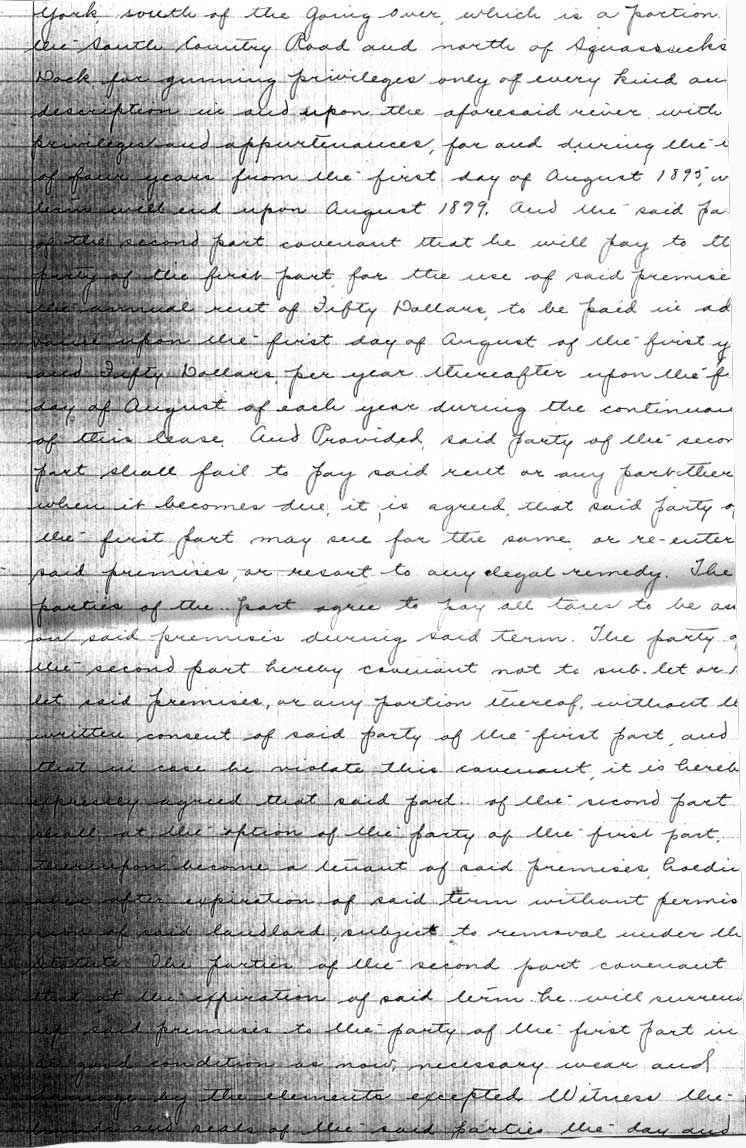 York, south of the Going Over, which is a portion
the South Country Road and north of Squassucks
Dock for gunning privileges only of every kind an
description in and upon the aforesaid river with
privileges and appurtenances, for and during the
of four years from the first day of August 1895, w
term will end upon August 1899. And the said pa
of the second part covenant that he will pay to th
party of the first part, for the use of said premise
the annual rent of Fifty Dollars, to be paid in ad
vance upon the first day of August of the first y
and Fifty Dollars, per year thereafter upon the f
day of August of each year during the continuan
of this lease. And Provided, said party of the secon
part shall fail to pay said rent or any part ther
when it becomes due, it is agreed, that said party o
the first part may sue for the same, or re-enter
said premises, or resort to any legal remedy. The
parties of the .. part agree to pay all taxes to be as
on said premises during said term. The party o
the second part hereby covenant not to sub-let or
let said premises, or any portion thereof, without th
written consent of said party of the first part, and
that in case he violate this covenant, it is hereb
expressly agreed that said part.. of the second part
shall at the option of the party of the first part,
thereupon become a tenant of said premises, holdin
over after expiration of said term without permis
sion of said landlord, subject to removal under th
Statute. The parties of the second part covenant
that at the expiration of said term he.. will surren
up said premises to the party of the first part in
as good condition as now, necessary wear and
damage by the elements excepted. Witness the
hands and seals of the said parties the day and